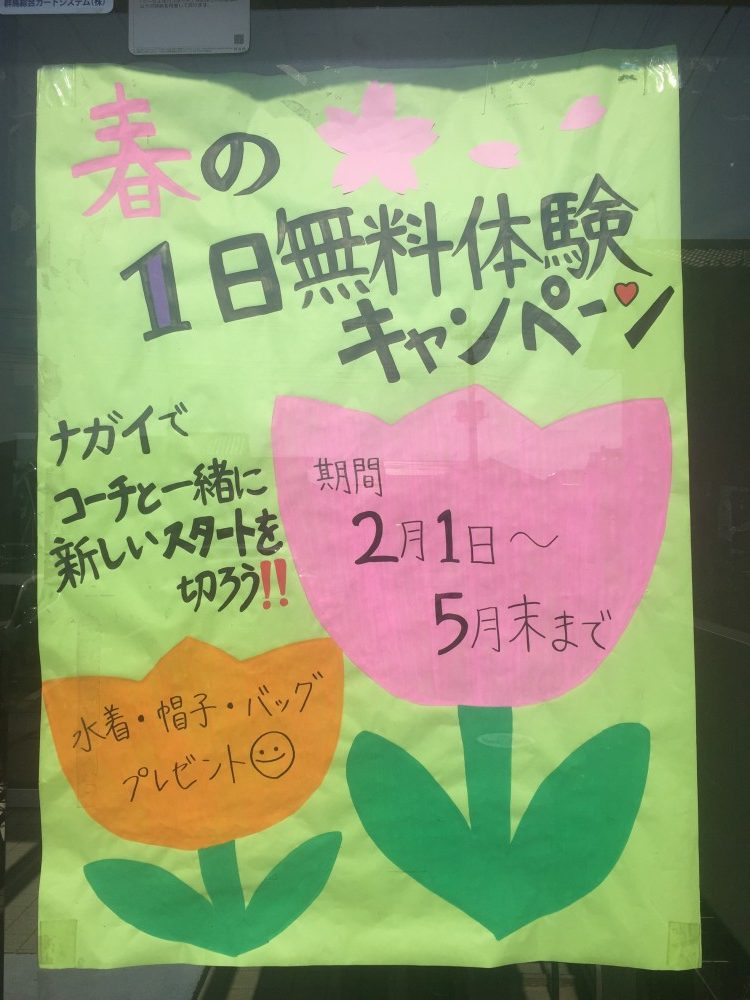 群馬総合ガードシステム(株)
春の
1日無料体験
キャンペーン
ナガイで
コーチと一緒に
新しいスタートを
切ろう!!
期間
2月1日〜
5月末まで
水着・帽子・バッグ
プレゼント